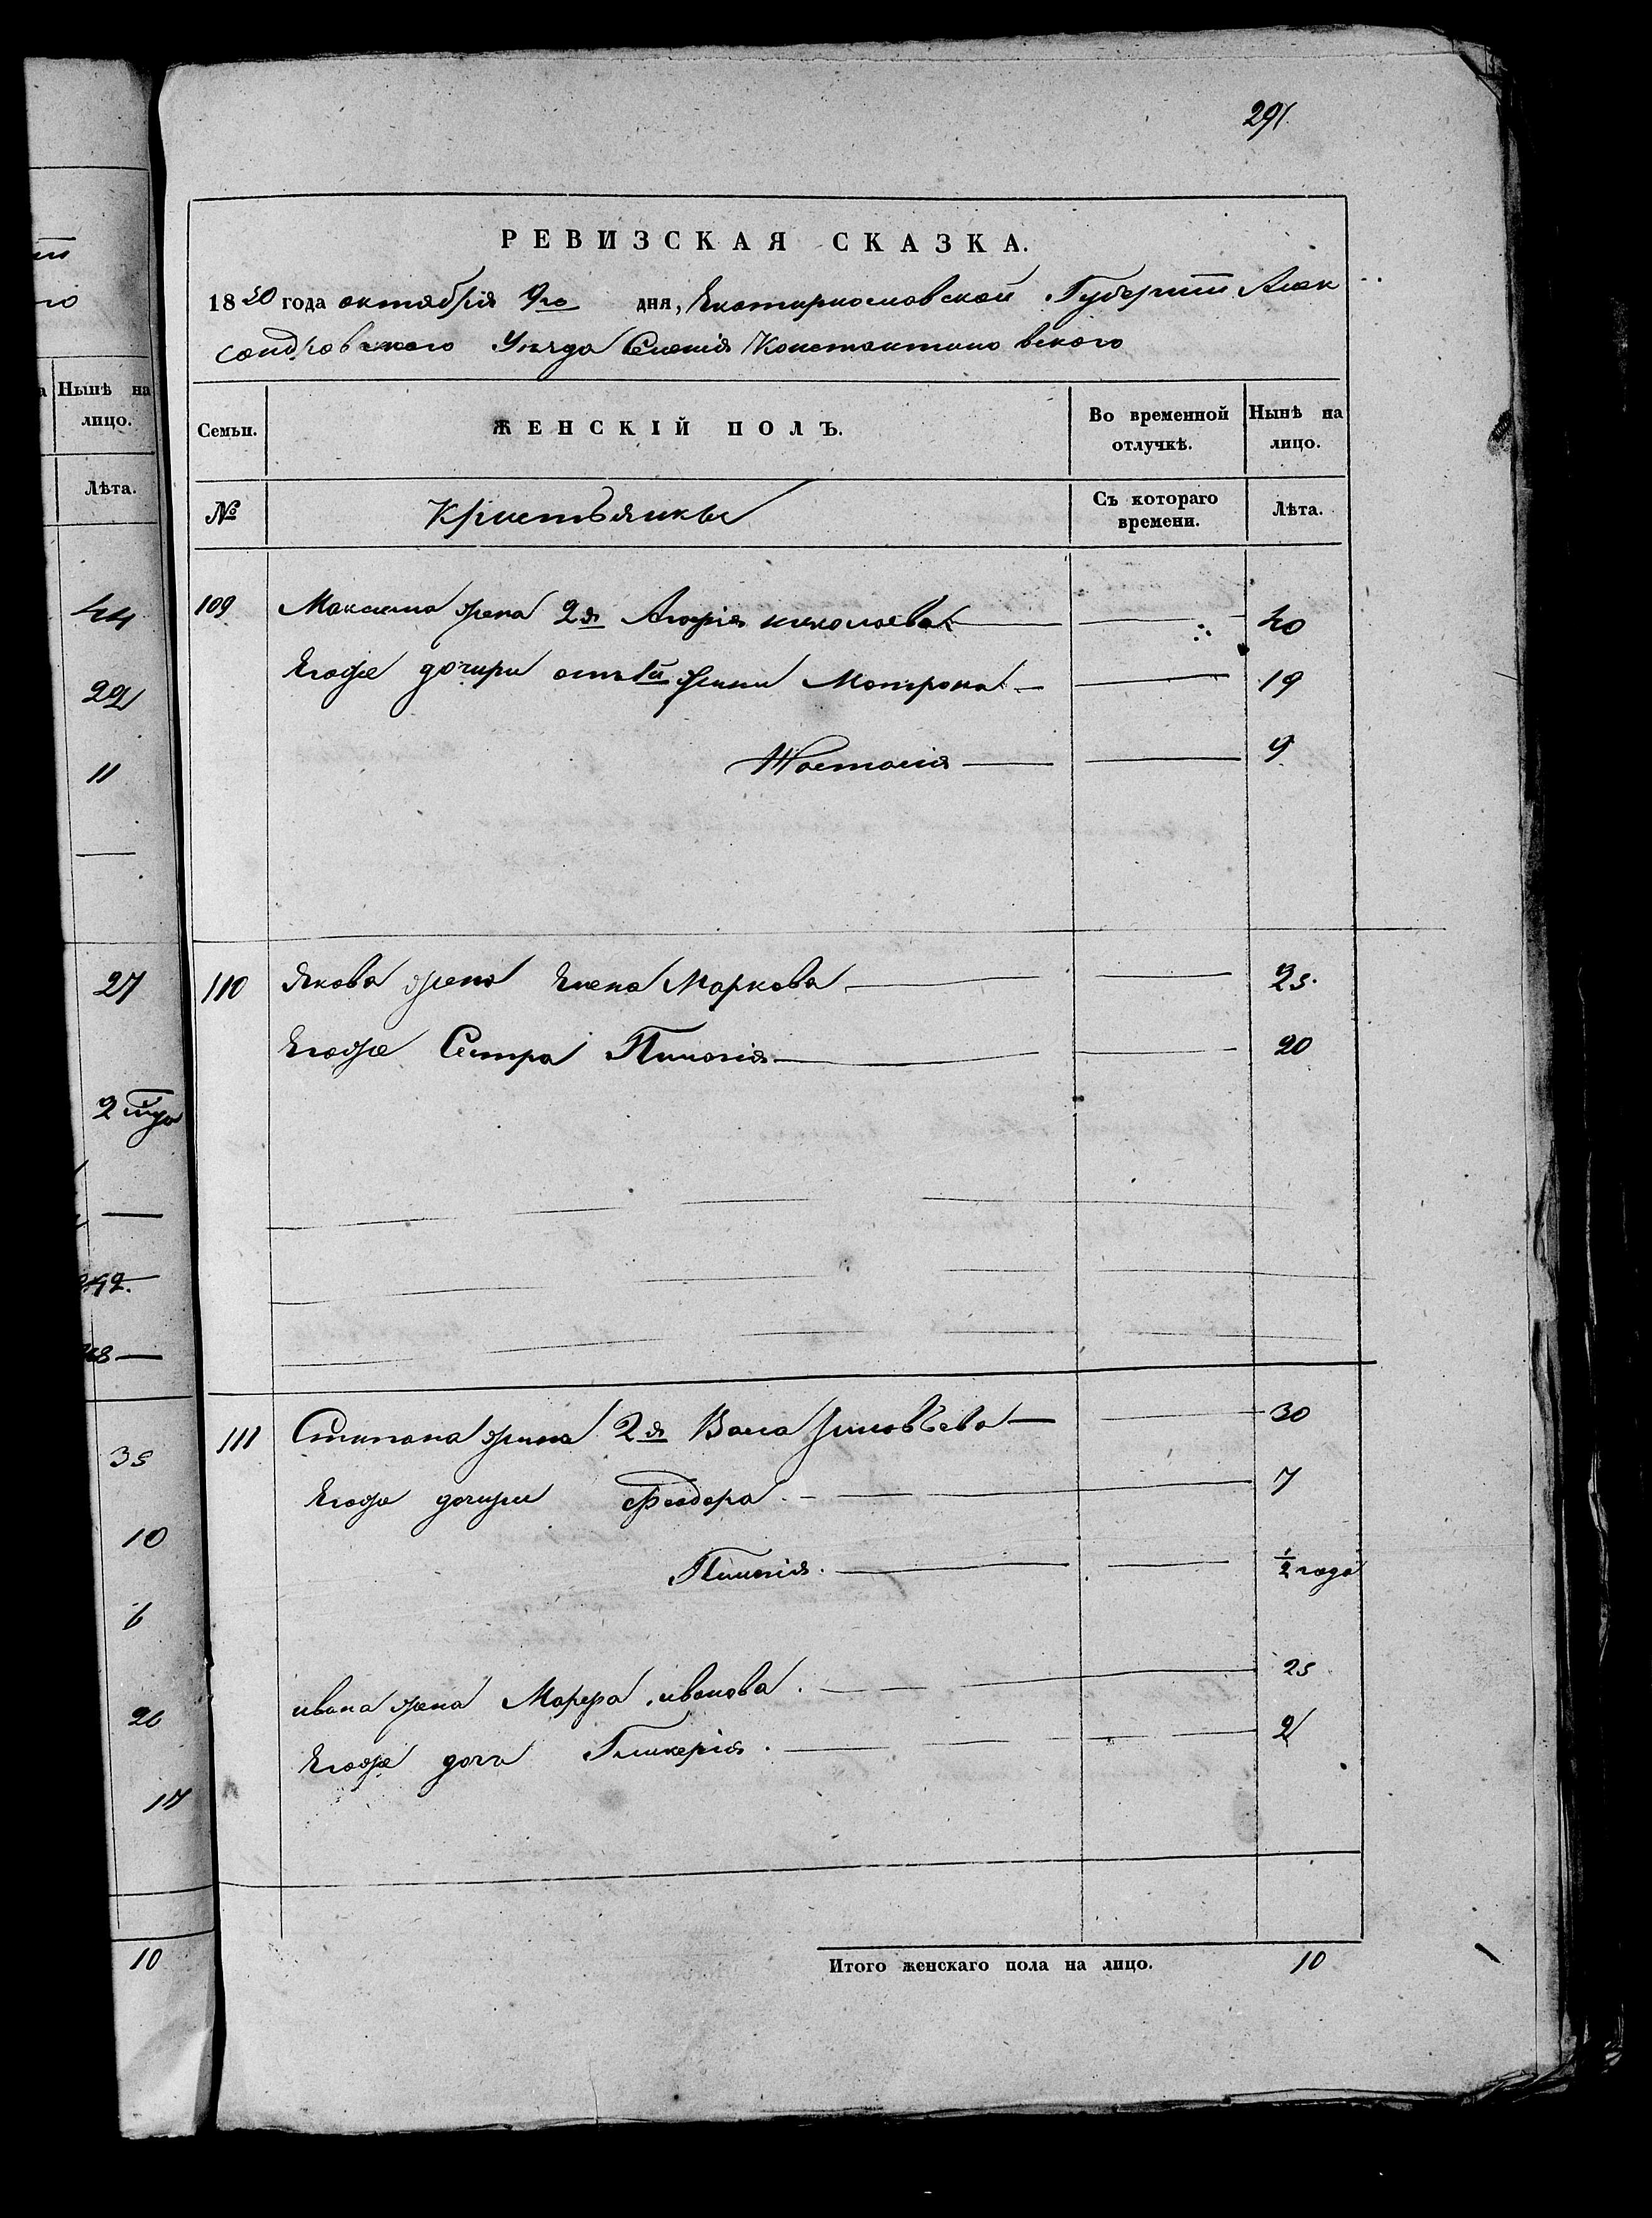 291
РЕВИЗСКАЯ СКАЗКА.
1850 года октября 9го дня, Екатериославской Губернии Алек
сандровского Уезда Селения Константиновского
Семьи.
ЖЕНСКІЙ ПОЛЪ.
Во временной отлучкѣ.
Нынѣ на лицо.
№
Кристьянки
Съ котораго времени.
Лѣта.
109 Максима жена 2я николаева 40
Егоже дочири отъ 1й жини Матрона 19
Настасия 9
110 Якова жена Елена Маркова 25
Егоже Сестра Пилагия 20
111 Стипана жина 2я Васа 30
Егоже дочири Феодора 7
Пилагия ½ года
ивана жена Марфа иванова 25
Егоже дочь Гликерия 2
Итого женскаго пола на лицо. 10
Нынѣ на
лицо.
Лѣта.
44
22
11
27
35
10
6
20
17
10